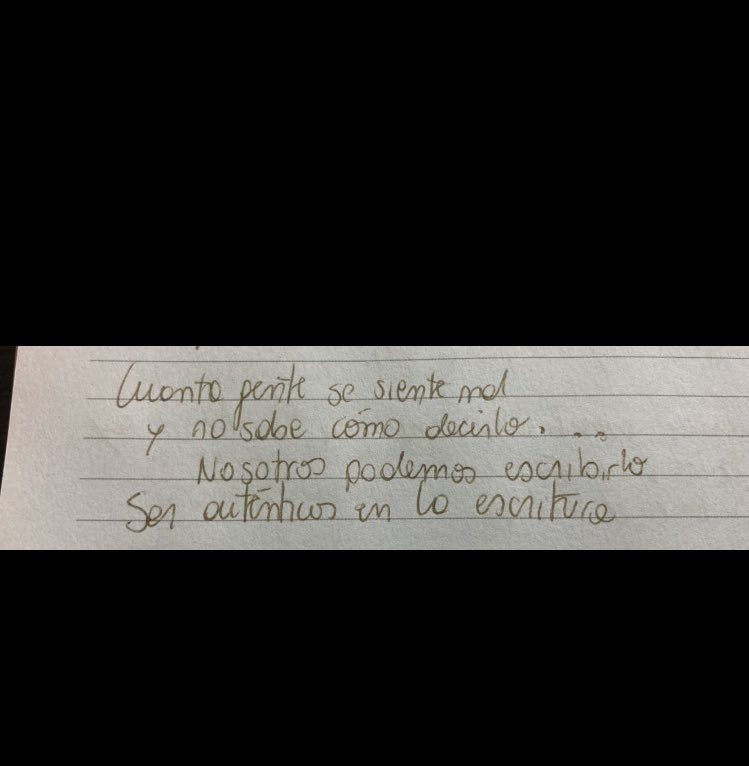 Cuanta gente se siente mal
y no sabe cómo decirlo. . .
Nosotros podemos escribirlo
Ser auténticos en la escritura